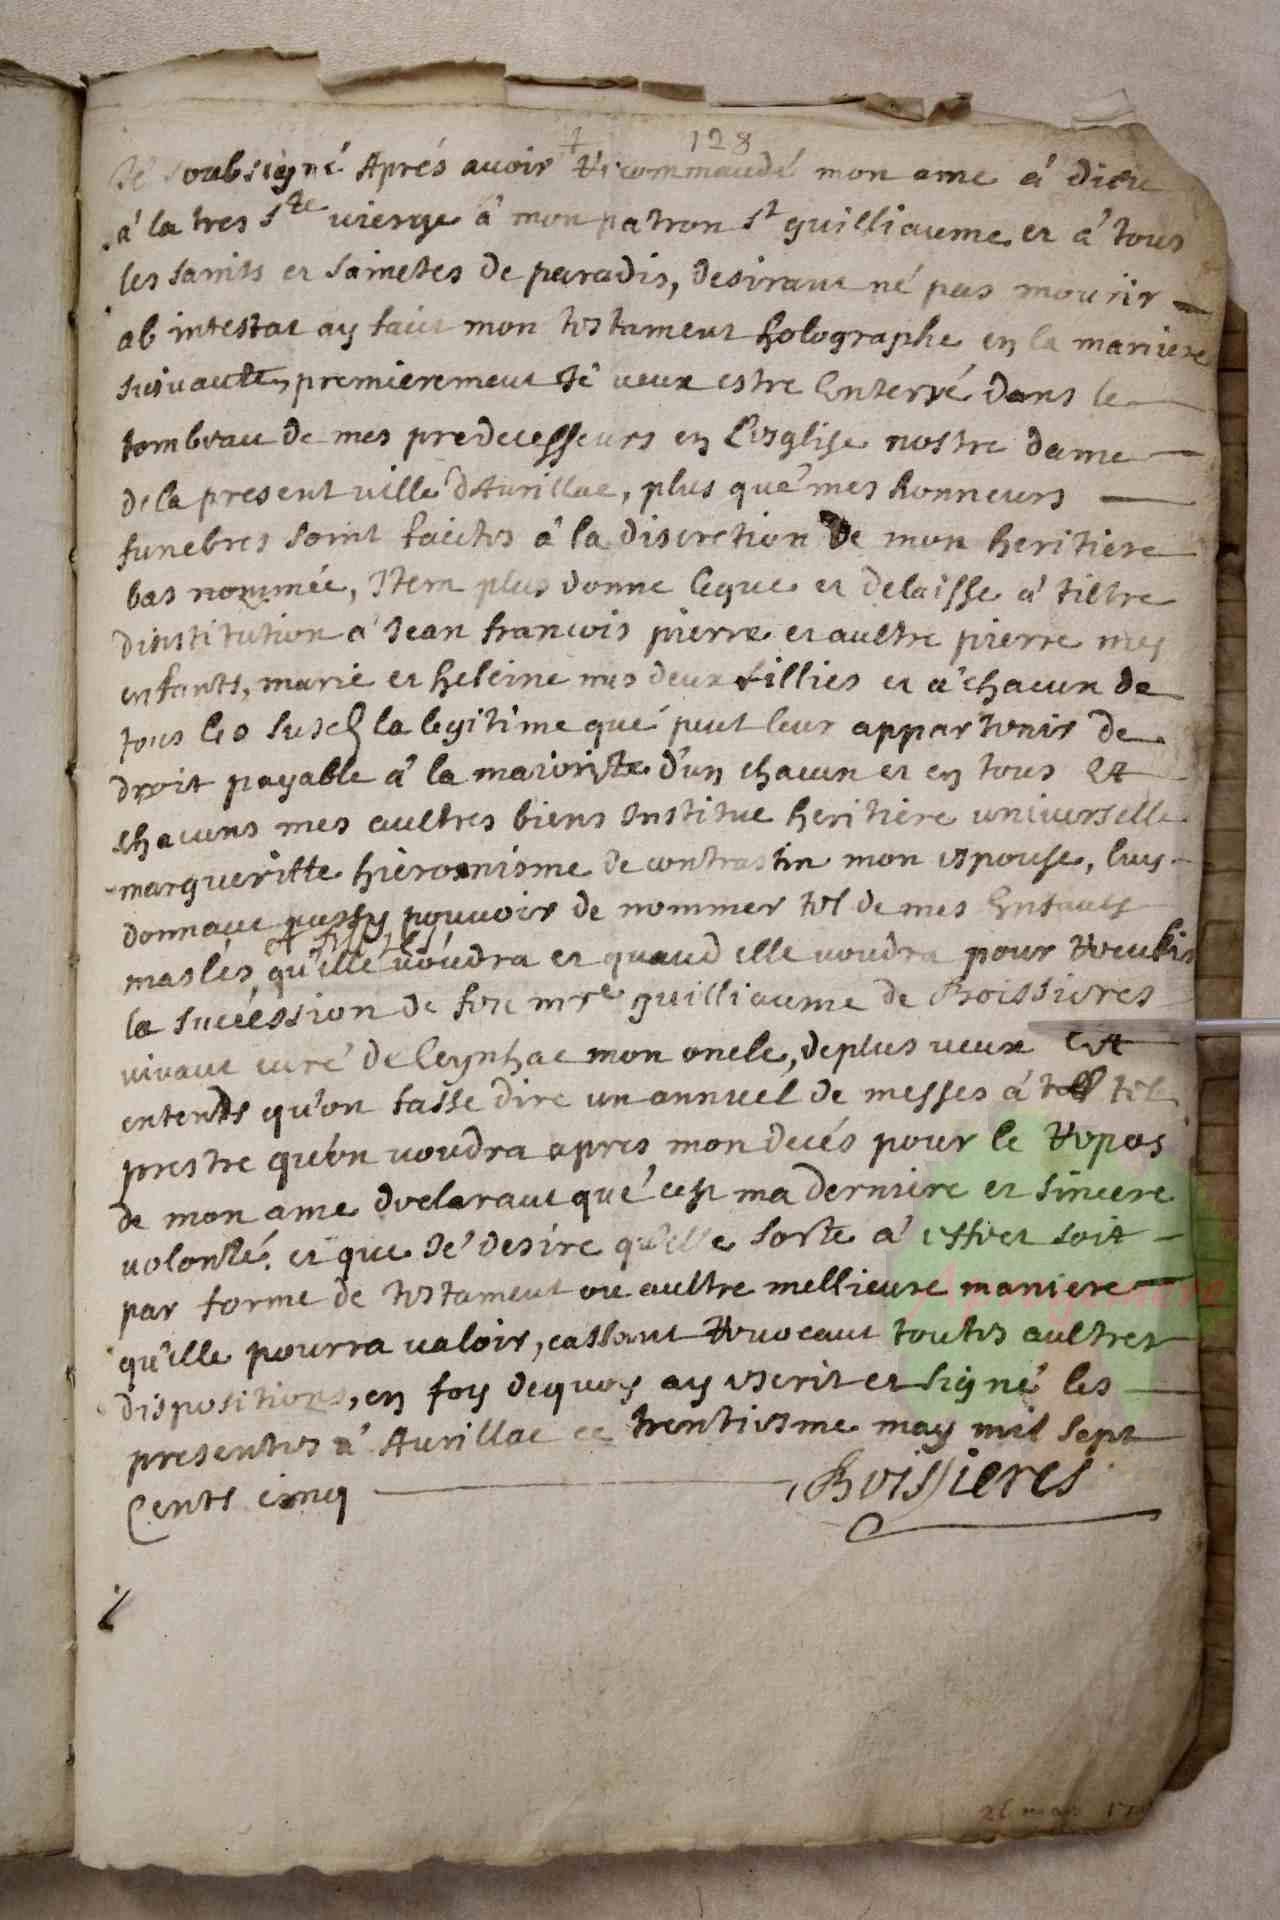 128
Je soubsigné Aprés avoir recommandé mon ame á dieu
á la tres Ste vierge á mon patron St guilliaume et á tous
les saints et sainctes de paradis, desirant né pas mourir
ab intestat ay faict mon testament holographe en la maniere
suivante, premierement Jé veux estre Enterré dans le
tombeau de mes predecesseurs en L'esglise nostre dame
de la present ville d'Aurillac, plus qué mes honneurs
funebres soint faictes á la discretion de mon heritiere
bas nommée, Item plus donne legue et delaisse á tiltre
dinstitution á Jean francois pierre et aultre pierre mes
enfants, marie et heleine mes deux fillies et á chacun de
tous les susd la legitime qué peut leur appartenir de
droit payable á la maiorite d'un chacun et en tous Et
chacuns mes aultres biens Institue heritiere universelle
margueritte hieronisme de contrastin mon espouse, luy
donnant pouvoir de nommer tel de mes Enfants
maslés qu'elle voudra et quand elle voudra pour recullir
la sucéssion de feu mre guilliaume de Boissieres
vivant curé de leynhac mon oncle, deplus veux Et
entends qu'on fasse dire un annuel de messes á tel
prestre qu'on voudra apres mon decés pour le repos
de mon ame declarant qué cest ma derniere et sincere
volonté. et que Jé desire qu'elle sorte á effet soit
par forme de testament ou aultre mellieure maniere
qu'elle pourra valoir, cassant revocant toutes aultres
dispositions, en foy dequoy ay escrit et signé les
presentes á Aurillac ce trentiesme may mil sept
Cents cinq Boissieres
Aprogemere